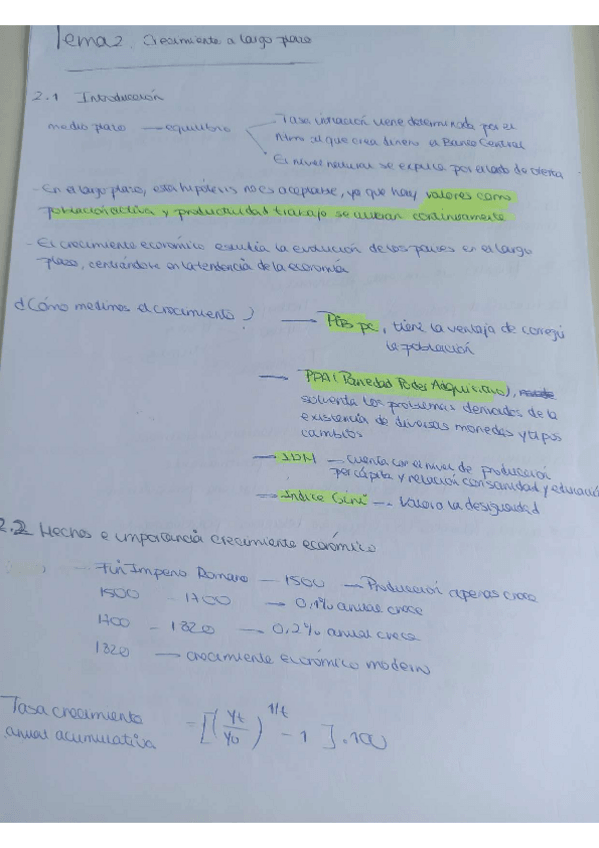 Tema 2. Crecimiento a largo plazo
2.1 Introducción
medio plazo — equilibrio
Tasa variación viene determinada por el
ritmo al que crea dinero el Banco Central
El nivel natural se explica por el lado de oferta
- En el largo plazo, esta hipótesis no es aceptable, ya que hay valores como
población activa y productividad trabajo se alteran continuamente
- El crecimiento económico estudia la evolución de los países en el largo
plazo, centrándose en la tendencia de la economía
¿Cómo medimos el crecimiento?
→ PIB pc, tiene la ventaja de corregir
la población
→ PPA (Paridad Poder Adquisitivo),
solventa los problemas derivados de la
existencia de diversas monedas y tipos
cambios
→ IDH — cuenta con el nivel de producción
per cápita y relación con sanidad y educación
→ Indice Gini — Valora la desigualdad
2.2 Hechos e importancia crecimiento económico
- Fin Imperio Romano — 1500 → Producción apenas crece
1500 - 1700 → 0,1% anual crece
1700 - 1820 → 0,2% anual crece
1820 → crecimiento económico moderno
Tasa crecimiento
anual acumulativa
= [(Yt/Y0)^1/t - 1] . 100